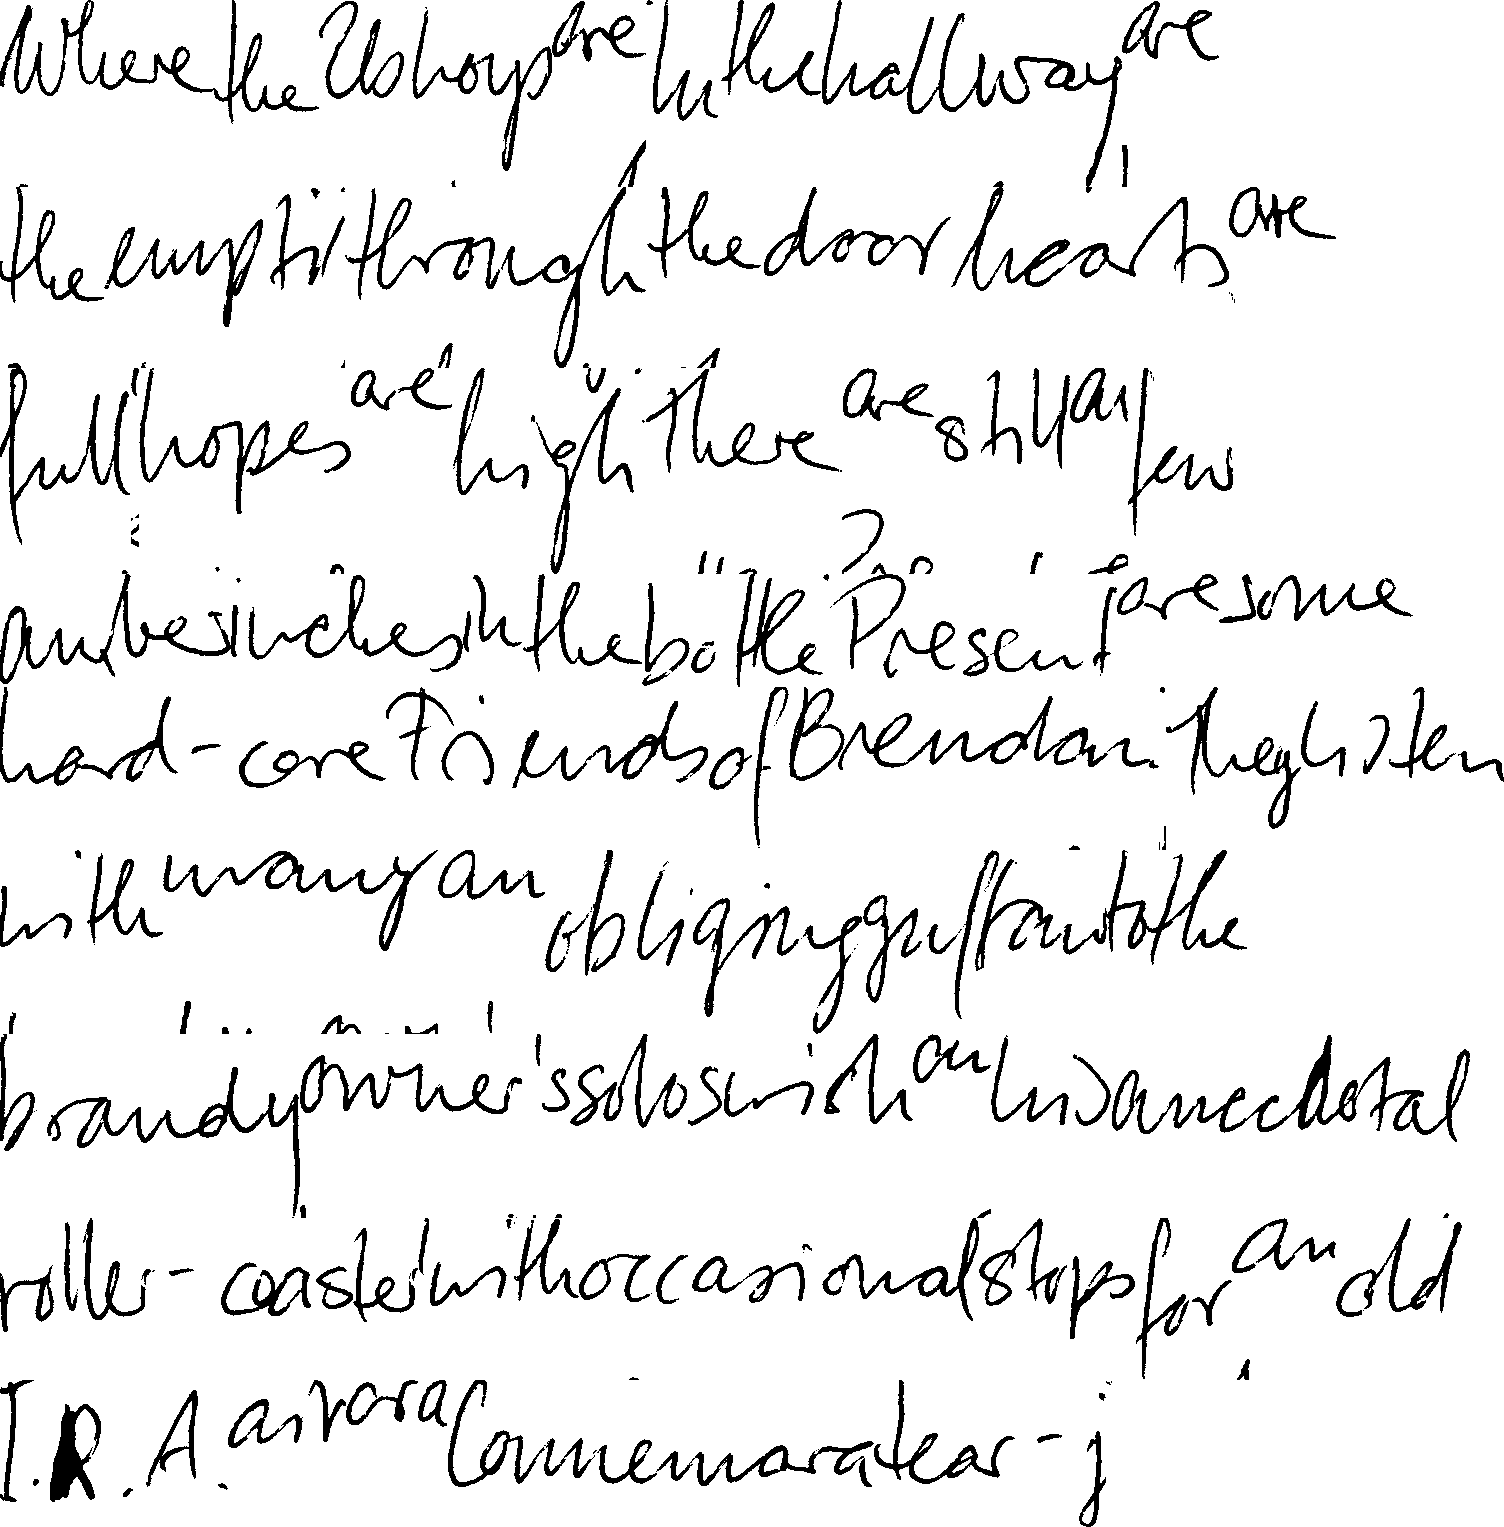 Where the are in the hallway are
the through the door hearts are
full hopes are high There are still a few
inches in the bottle. Present are some
hard-core Friends of Brendan. They listen
with many an obliging to the
brandy owner's solos an his anecdotal
roller-coaster with occasional stops for an old
I.R.A. air or a Connemara tear-j